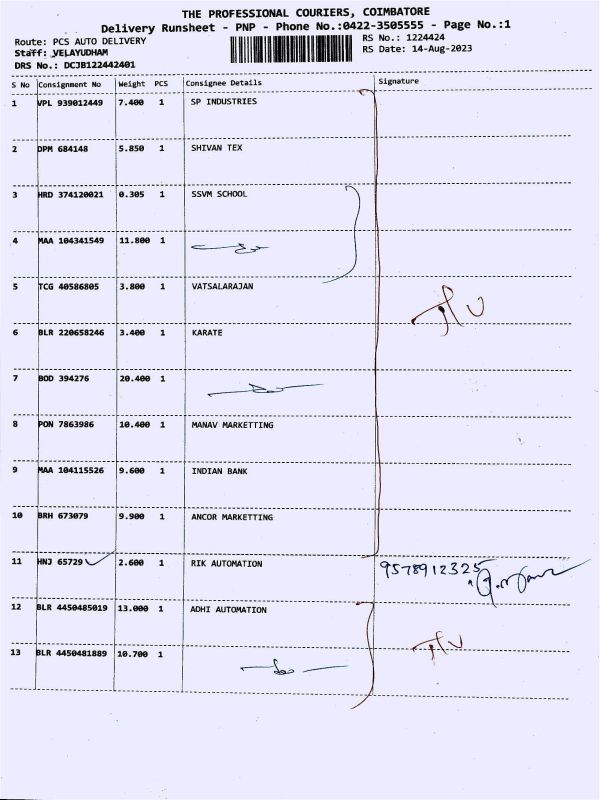 THE PROFESSIONAL COURIERS, COIMBATORE
Delivery Runsheet - PNP - Phone No.:0422-3505555 - Page No.:1
Route: PCS AUTO DELIVERY RS No.: 1224424
Staff: VELAYUDHAM RS Date: 14-Aug-2023
DRS No.: DCJB122442401
S No Consignment No Weight PCS Consignee Details Signature
1 VPL 939012449 7.400 1 SP INDUSTRIES
2 DPM 684148 5.850 1 SHIVAN TEX
3 HRD 374120021 0.305 1 SSVM SCHOOL
4 MAA 104341549 11.800 1
5 TCG 40586805 3.800 1 VATSALARAJAN
6 BLR 220658246 3.400 1 KARATE
7 BOD 394276 20.400 1
8 PON 7863986 10.400 1 MANAV MARKETTING
9 MAA 104115526 9.600 1 INDIAN BANK
10 BRH 673079 9.900 1 ANCOR MARKETTING
11 HNJ 65729 2.600 1 RIK AUTOMATION 9578912325
12 BLR 4450485019 13.000 1 ADHI AUTOMATION
13 BLR 4450481889 10.700 1